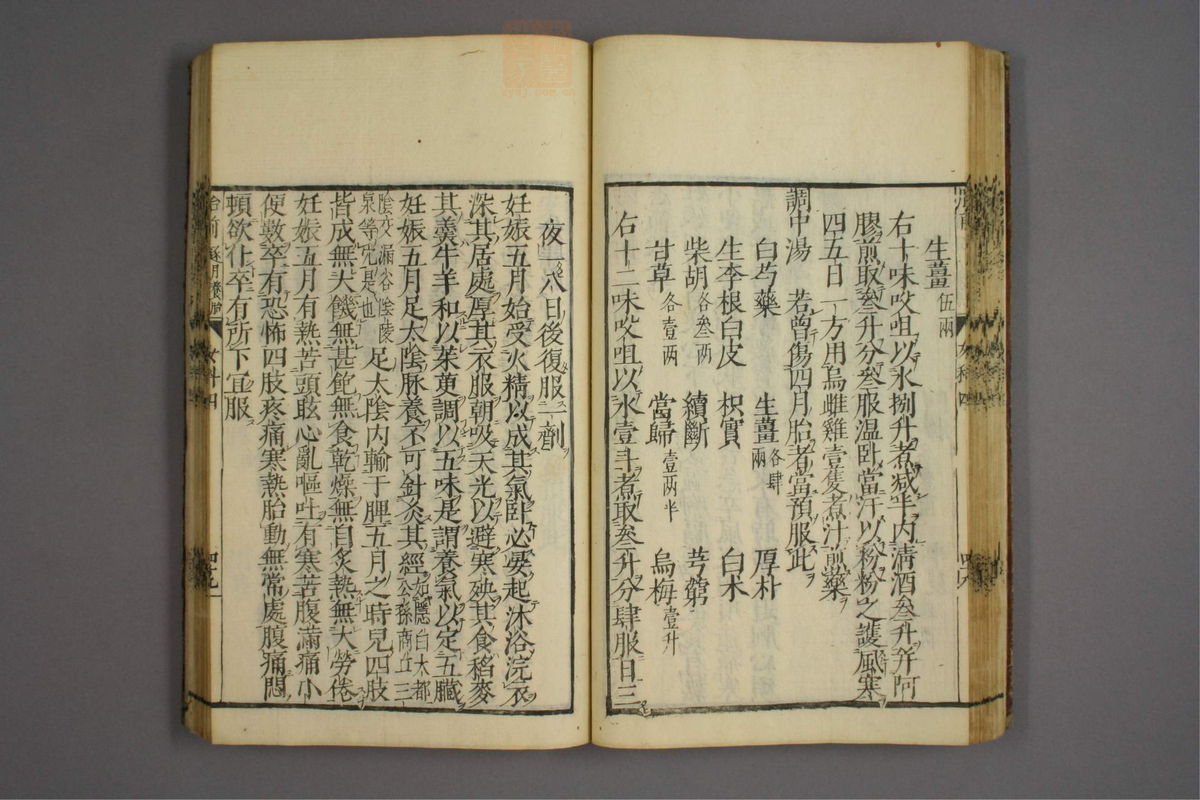 生薑伍兩
右十味㕮咀以水捌升煮减半内清酒叁升并阿
膠煎取叁升分叁服温卧當汗以粉粉之護風寒
四五日一方用烏雌雞壹隻煮汁煎藥
調中湯 若曾傷四月胎者當預服此
白芍藥 生薑各肆兩 厚朴
生李根白皮 枳實 白术
柴胡各叁兩 續斷 芎藭
甘草各壹兩 當歸壹兩半 烏梅壹升
右十二味㕮咀以水壹斗煮取叁升分肆服日三
夜一八日後復服一劑
妊娠五月始受火精以成其氣卧必晏起沐浴浣衣
深其居處厚其衣服朝吸天光以避寒殃其食稻麥
其羹牛羊和以茱萸調以五味是謂養氣以定五臟
妊娠五月足太陰脉養不可針灸其經如隱白太都公孫商丘三
陰交漏谷陰陵泉等穴是也足太陰内輸于脾五月之時兒四肢
皆成無大饑無甚飽無食乾燥無自炙熱無大勞倦
妊娠五月有熱苦頭眩心亂嘔吐有寒苦腹滿痛小
便數卒有恐怖四肢疼痛寒熱胎動無常處腹痛悶
頓欲仆卒有所下宜服
女科四